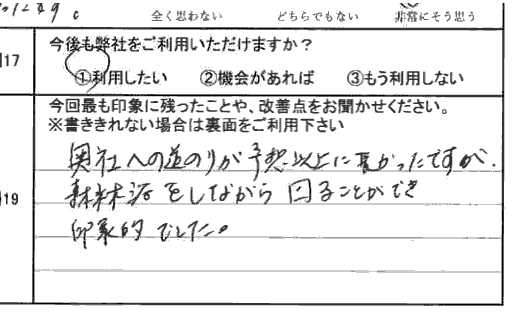 全く思わない どちらでもない 非常にそう思う
17 今後も弊社をご利用いただけますか？
①利用したい ②機会があれば ③もう利用しない
今回最も印象に残ったことや、改善点をお聞かせください。
※書ききれない場合は裏面をご利用下さい
奥社への道のりが予想以上に長かったですが、
19 森林浴をしながら回ることができ
印象的でした。